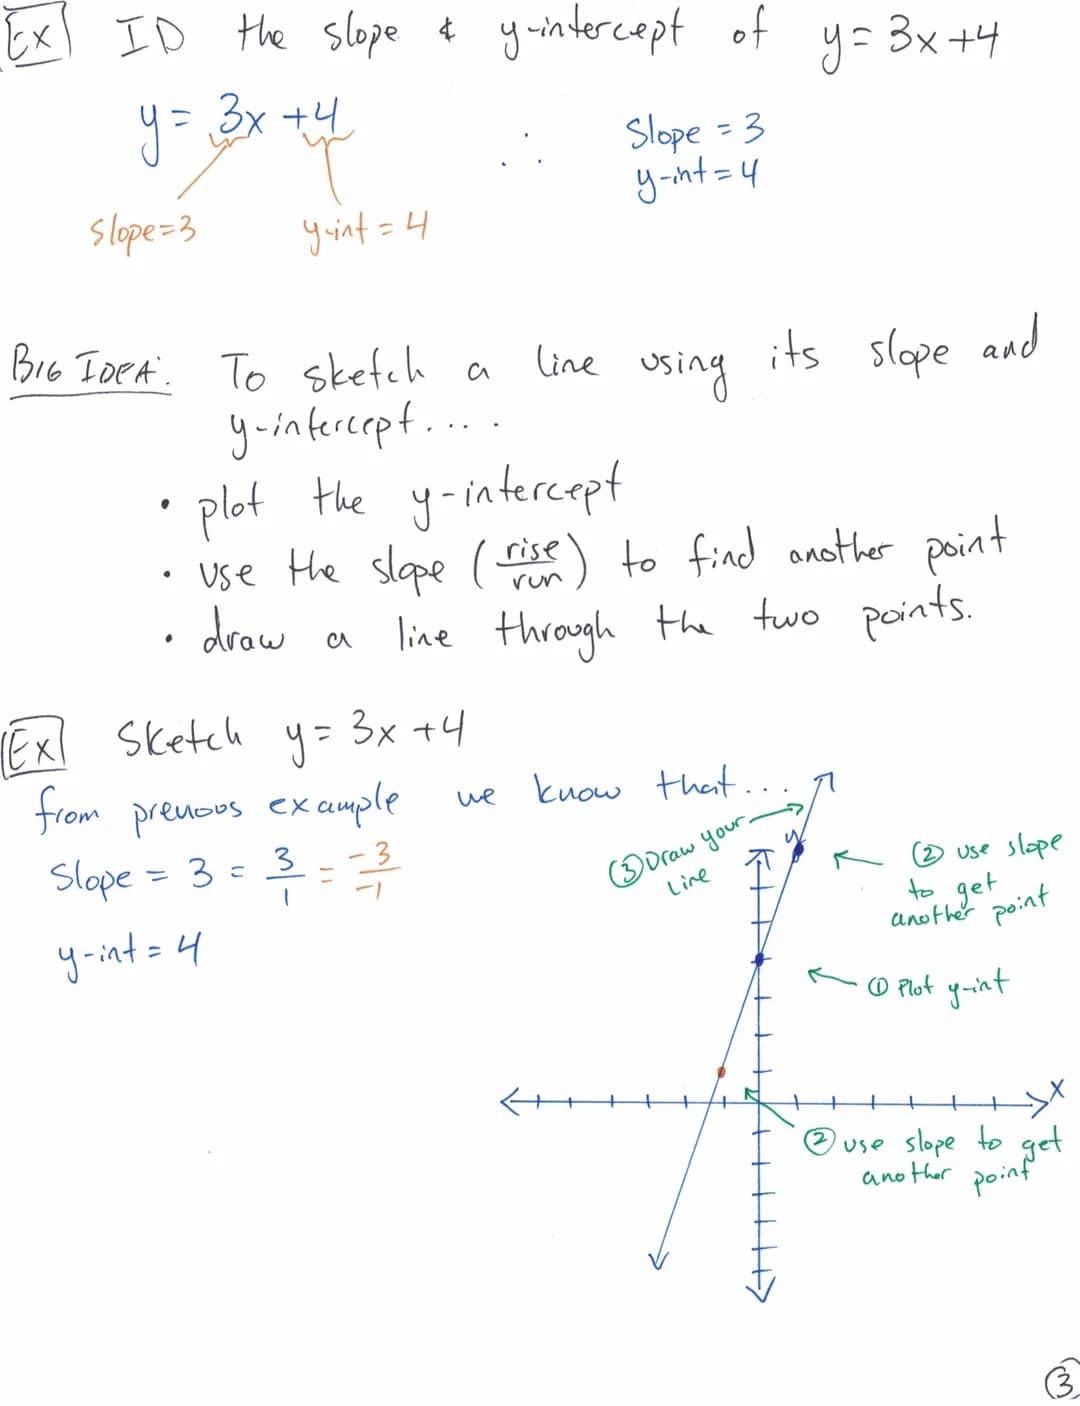 Ex ID the slope & y-intercept of y = 3x + 4
y = 3x + 4
∴ Slope = 3
y-int = 4
slope = 3 y-int = 4
BIG IDEA: To sketch a line using its slope and
y-intercept....
• plot the y-intercept
• use the slope (rise/run) to find another point
• draw a line through the two points.
Ex Sketch y = 3x + 4
from prevous example we know that...
Slope = 3 = 3/1 = -3/-1
y-int = 4
③ Draw your
Line
y
② use slope
to get
another point
① Plot y-int
x
② use slope to get
another point
③